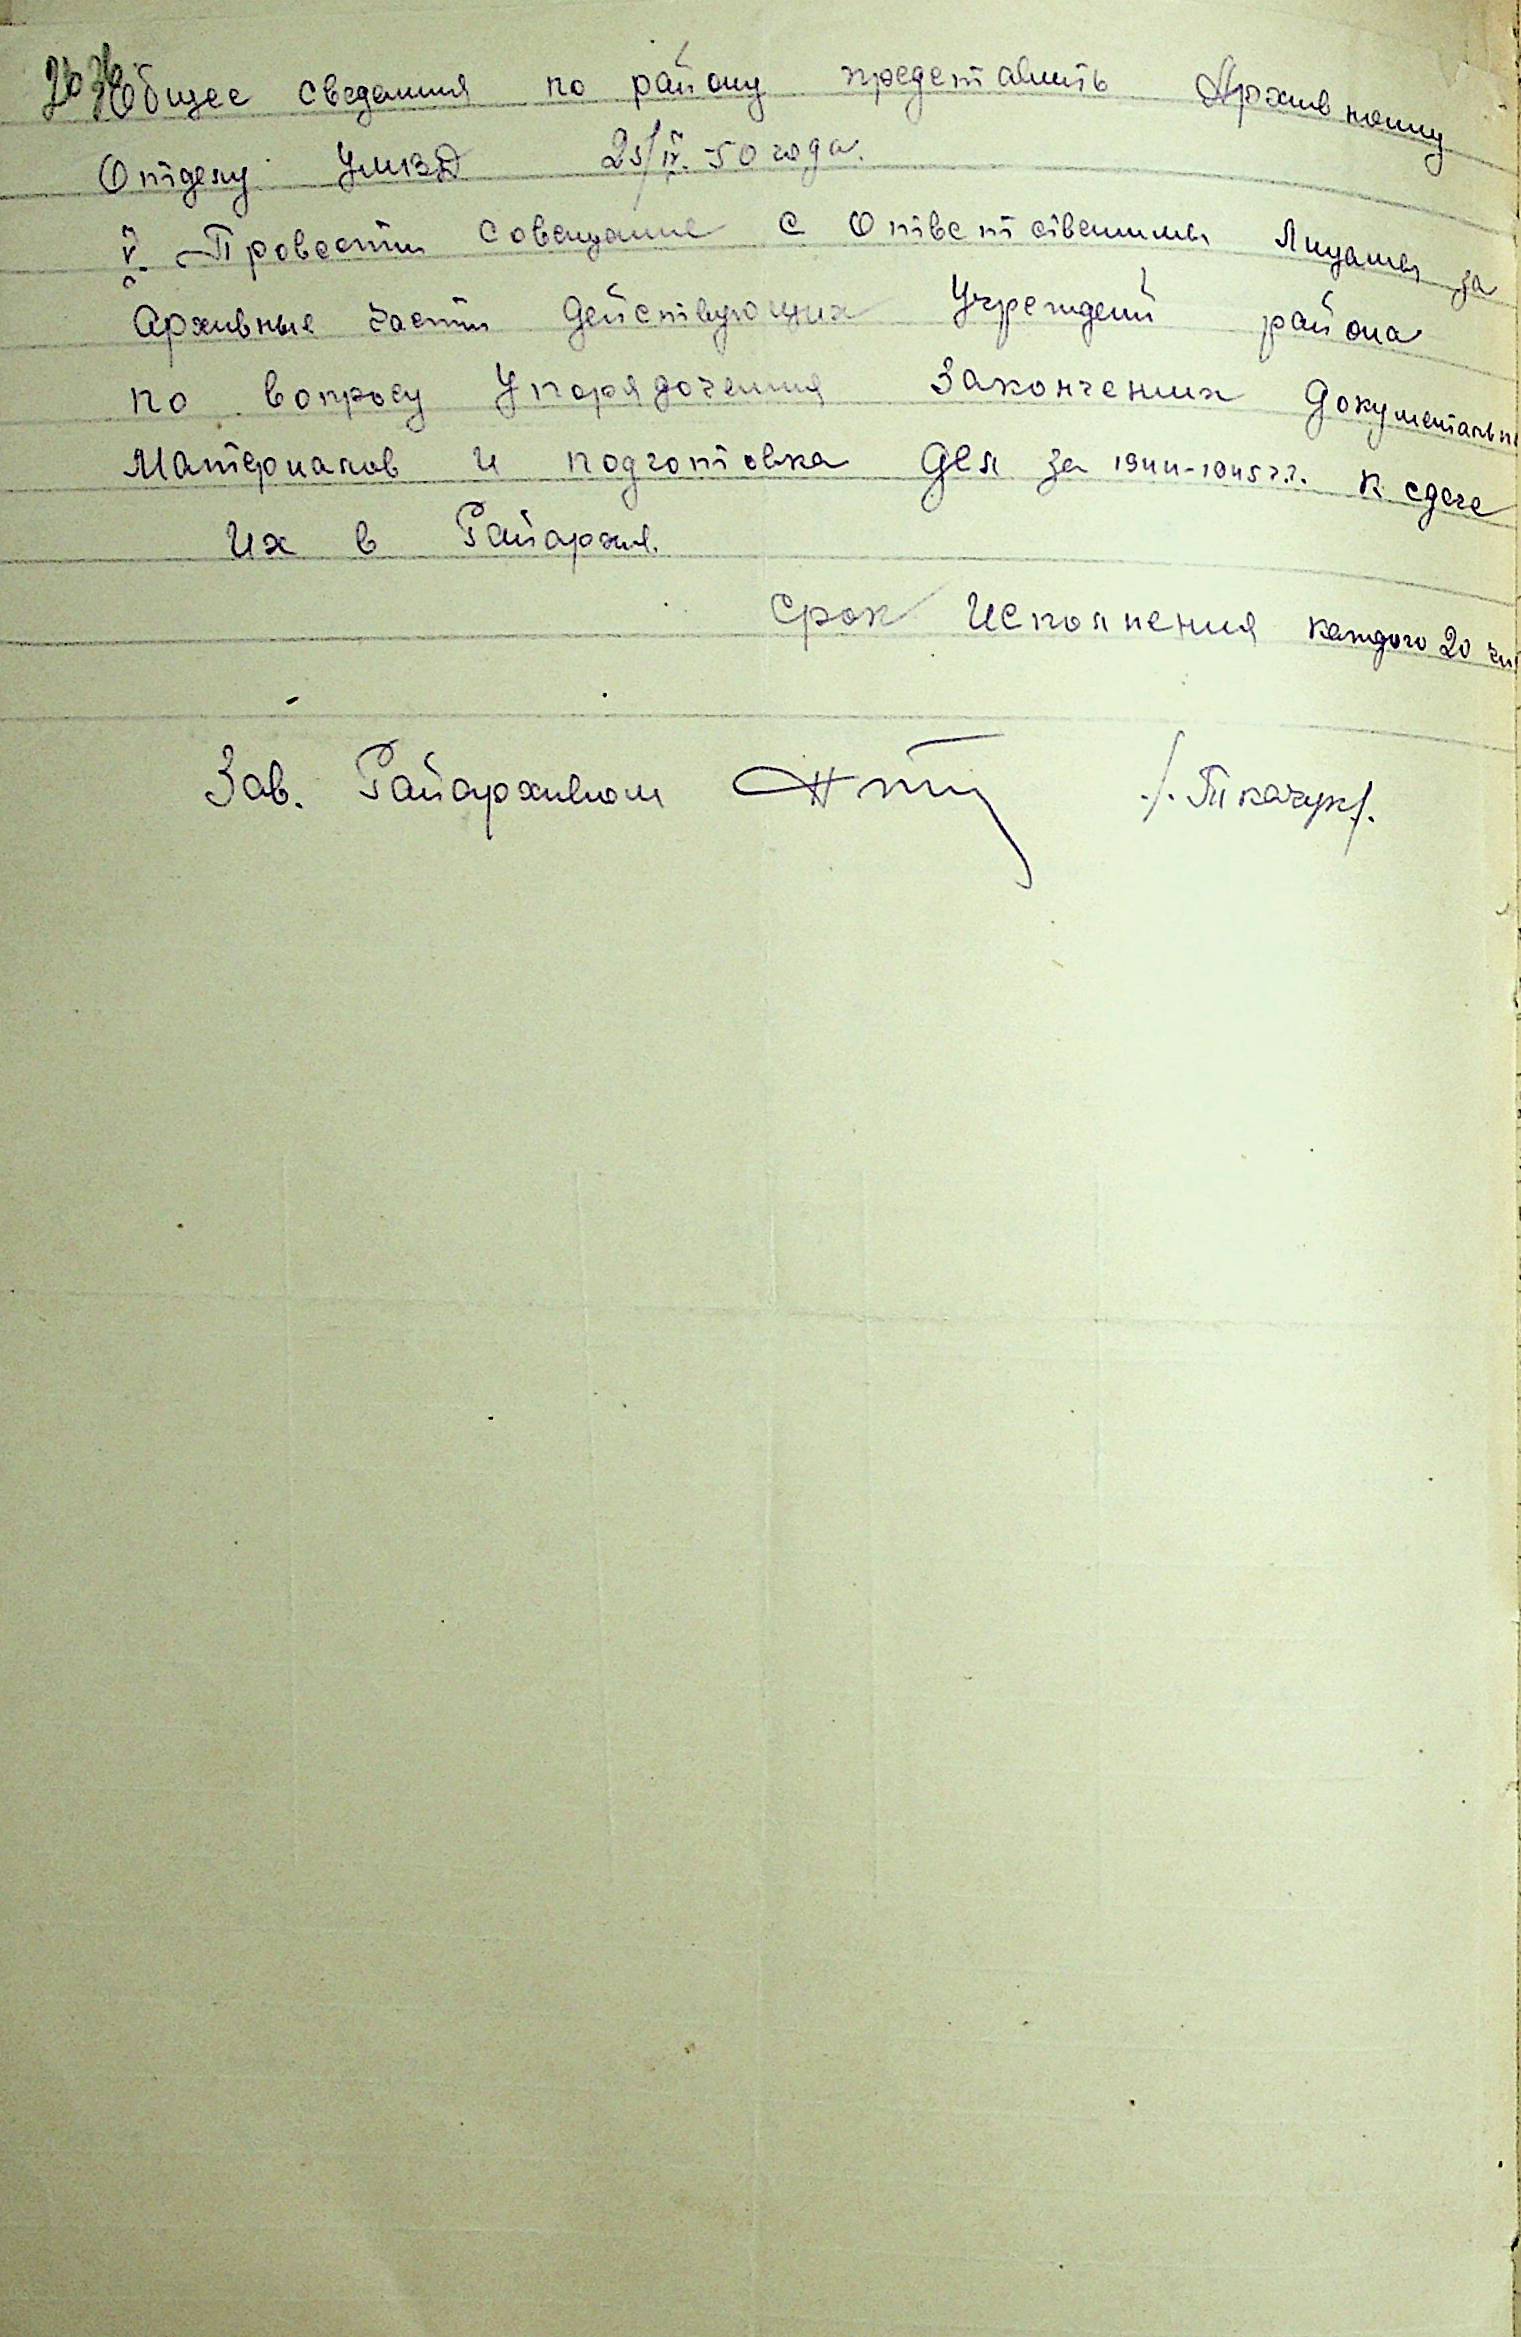 Общее сведения по району представить Архивному
Отделу УМВД 25/IV.-50 года.
V. Провести совещание с Ответственимы Лицамы за
Архивные части Действующих Учреждений района
по вопросу Упорядочения Закончених Документальн
Материалов и подготовка Дел за 1944-1945 г.г. к сдаче
Их в Райархив.
Срок Исполнения каждого 20 чи
Зав. Райархивом /. Ткачук/.